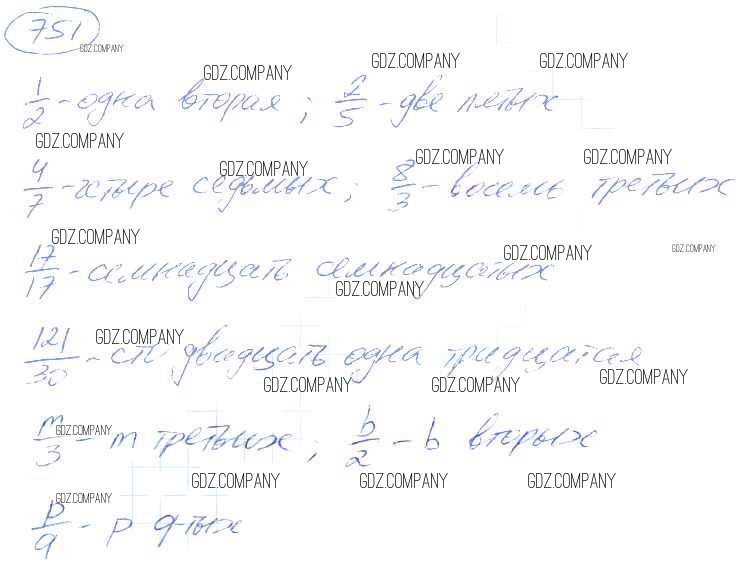 751
GDZ.COMPANY
GDZ.COMPANY GDZ.COMPANY GDZ.COMPANY
1/2 - одна вторая ; 2/5 - две пятых
GDZ.COMPANY GDZ.COMPANY GDZ.COMPANY GDZ.COMPANY
4/7 - четыре седьмых ; 8/3 - восемь третьих
GDZ.COMPANY GDZ.COMPANY GDZ.COMPANY
17/17 - семнадцать семнадцатых
GDZ.COMPANY
GDZ.COMPANY
121/30 - сто двадцать одна тридцатая
GDZ.COMPANY GDZ.COMPANY GDZ.COMPANY
GDZ.COMPANY
m/3 - m третьих ; b/2 - b вторых
GDZ.COMPANY GDZ.COMPANY GDZ.COMPANY GDZ.COMPANY
p/q - p q-тых